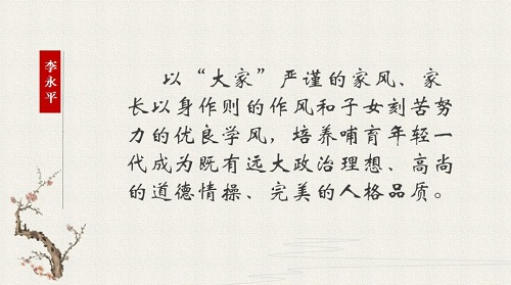 李永平
以“大家”严谨的家风、家
长以身作则的作风和子女刻苦努
力的优良学风，培养哺育年轻一
代成为既有远大政治理想、高尚
的道德情操、完美的人格品质。